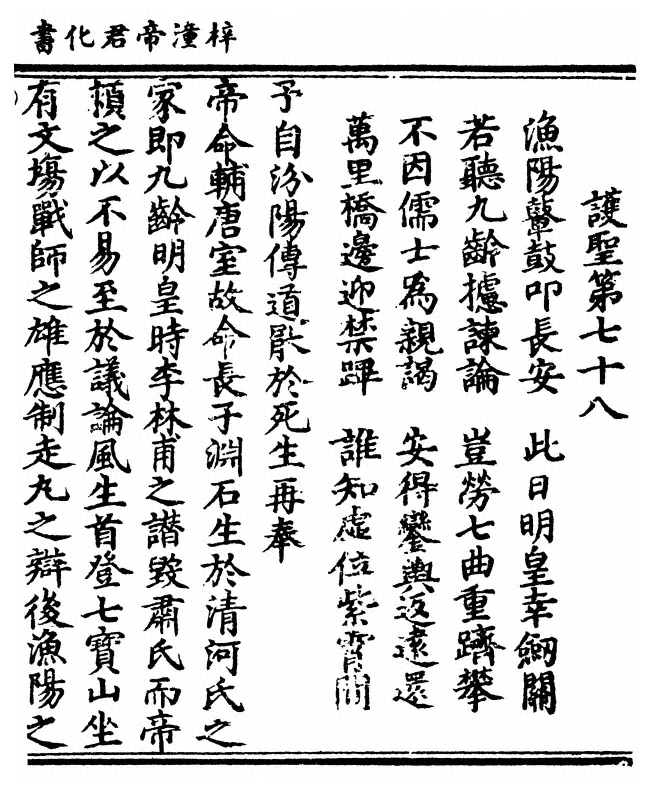 梓潼帝君化書
護聖第七十八
漁陽鼙鼓叩長安 此日明皇幸劒關
若聽九齡攄諫論 豈勞七曲重躋攀
不因儒士為親謁 安得鑾輿返遠還
萬里橋邊迎禁蹕 誰知虛位紫霄間
予自汾陽傳道厭於死生再奉
帝命輔唐室故命長子淵石生於清河氏之
家即九齡明皇時李林甫之譖毀肅氏而帝
頼之以不易至於議論風生首登七寶山坐
有文場戰師之雄應制走丸之辯後漁陽之